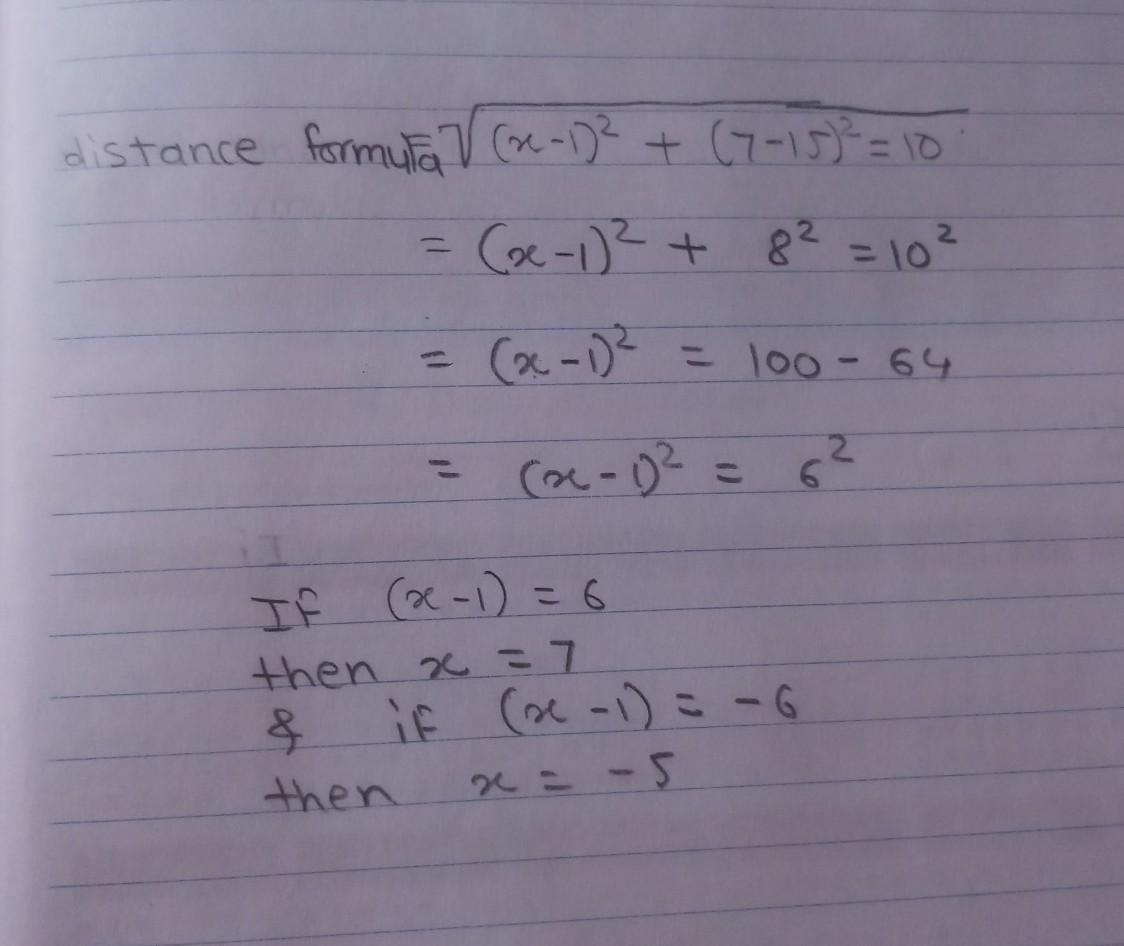 distance formula √(x-1)² + (7-15)² = 10
= (x-1)² + 8² = 10²
= (x-1)² = 100 - 64
= (x-1)² = 6²
If (x-1) = 6
then x = 7
& if (x-1) = -6
then x = -5